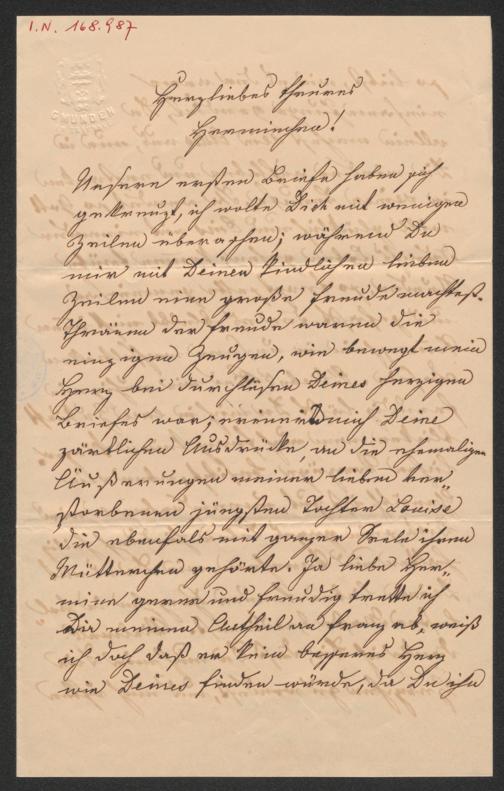 I.N. 168.987
GMUNDEN
Herzliebes theures
Herminchen!
Unsere ersten Briefe haben sich
gekreuzt, ich wolte Dich mit wenigen
Zeilen überaschen; während Du
mir mit Deinen kindlichen lieben
Zeilen eine große Freude machtest.
Thränen der Freude waren die
einzigen Zeugen, wie bewegt mein
Herz bei Durchlesen Deines herzigen
Briefes war; erinnert mich Deine
zärtlichen Ausdrücke, an die ehemaligen
Äußerungen meiner lieben ver„
storbenen jüngsten Tochter Louise
die ebenfals mit ganzer Seele ihrem
Mütterchen gehörte. Ja liebe Her„
mine gerne und freudig trette ich
Dir meinen Antheil an Franz ab, weiß
ich doch daß er kein besseres Herz
wie Deines finden würde, da Du ihn